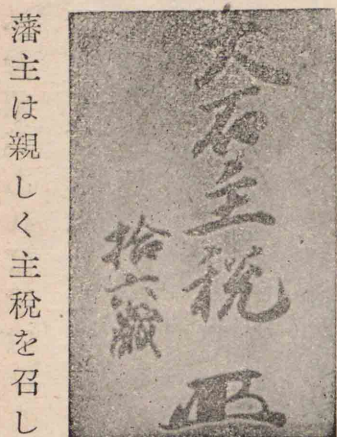 大石主税
拾六歳
藩主は親しく主税を召し